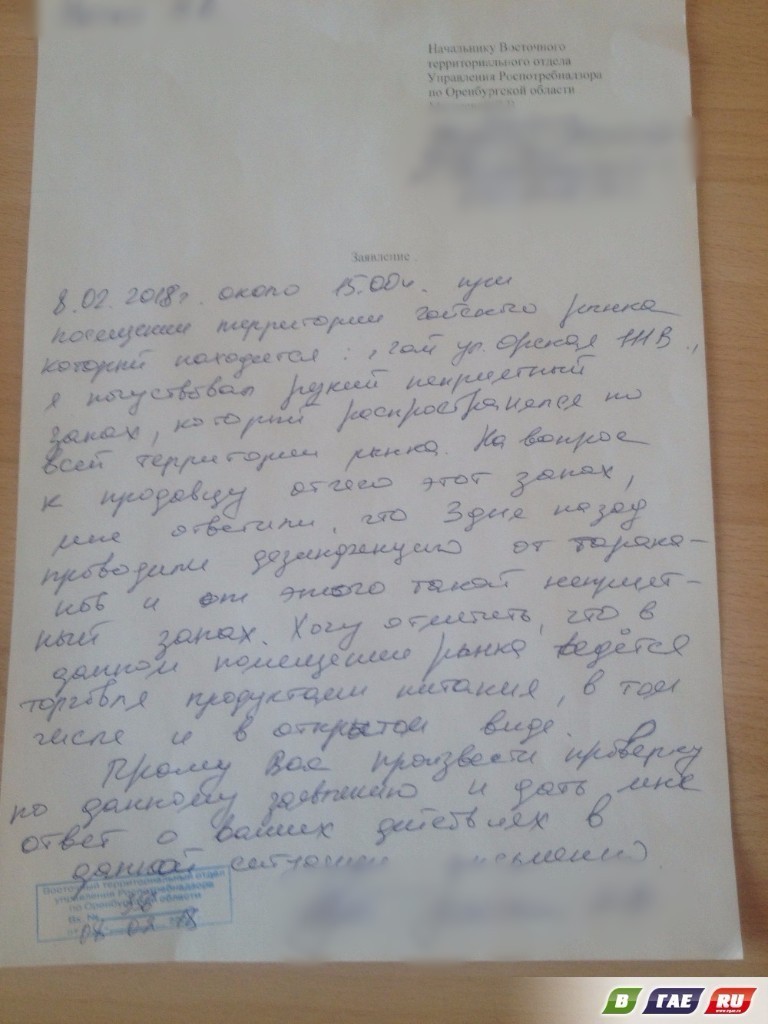 Начальнику Восточного
территориального отдела
Управления Роспотребнадзора
по Оренбургской области
Заявление
8.02.2018г. около 15.00ч. при
посещении территории гайского рынка
который находится: г. Гай ул. Орская 111В.,
я почувствовал резкий неприятный
запах, который распространялся по
всей территории рынка. На вопрос
к продавцу отчего этот запах,
мне ответили, что 3 дня назад
проводили дезинфекцию от тарака-
нов и от этого такой неприят-
ный запах. Хочу отметить, что в
данном помещении рынка ведётся
торговля продуктами питания, в том
числе и в открытом виде.
Прошу Вас произвести проверку
по данному заявлению и дать мне
ответ о ваших действиях в
данной ситуации письменно.
Восточный территориальный отдел
управления Роспотребнадзора
по Оренбургской области
Вх. №
08 02 18
В ГАЕ RU
www.vgae.ru